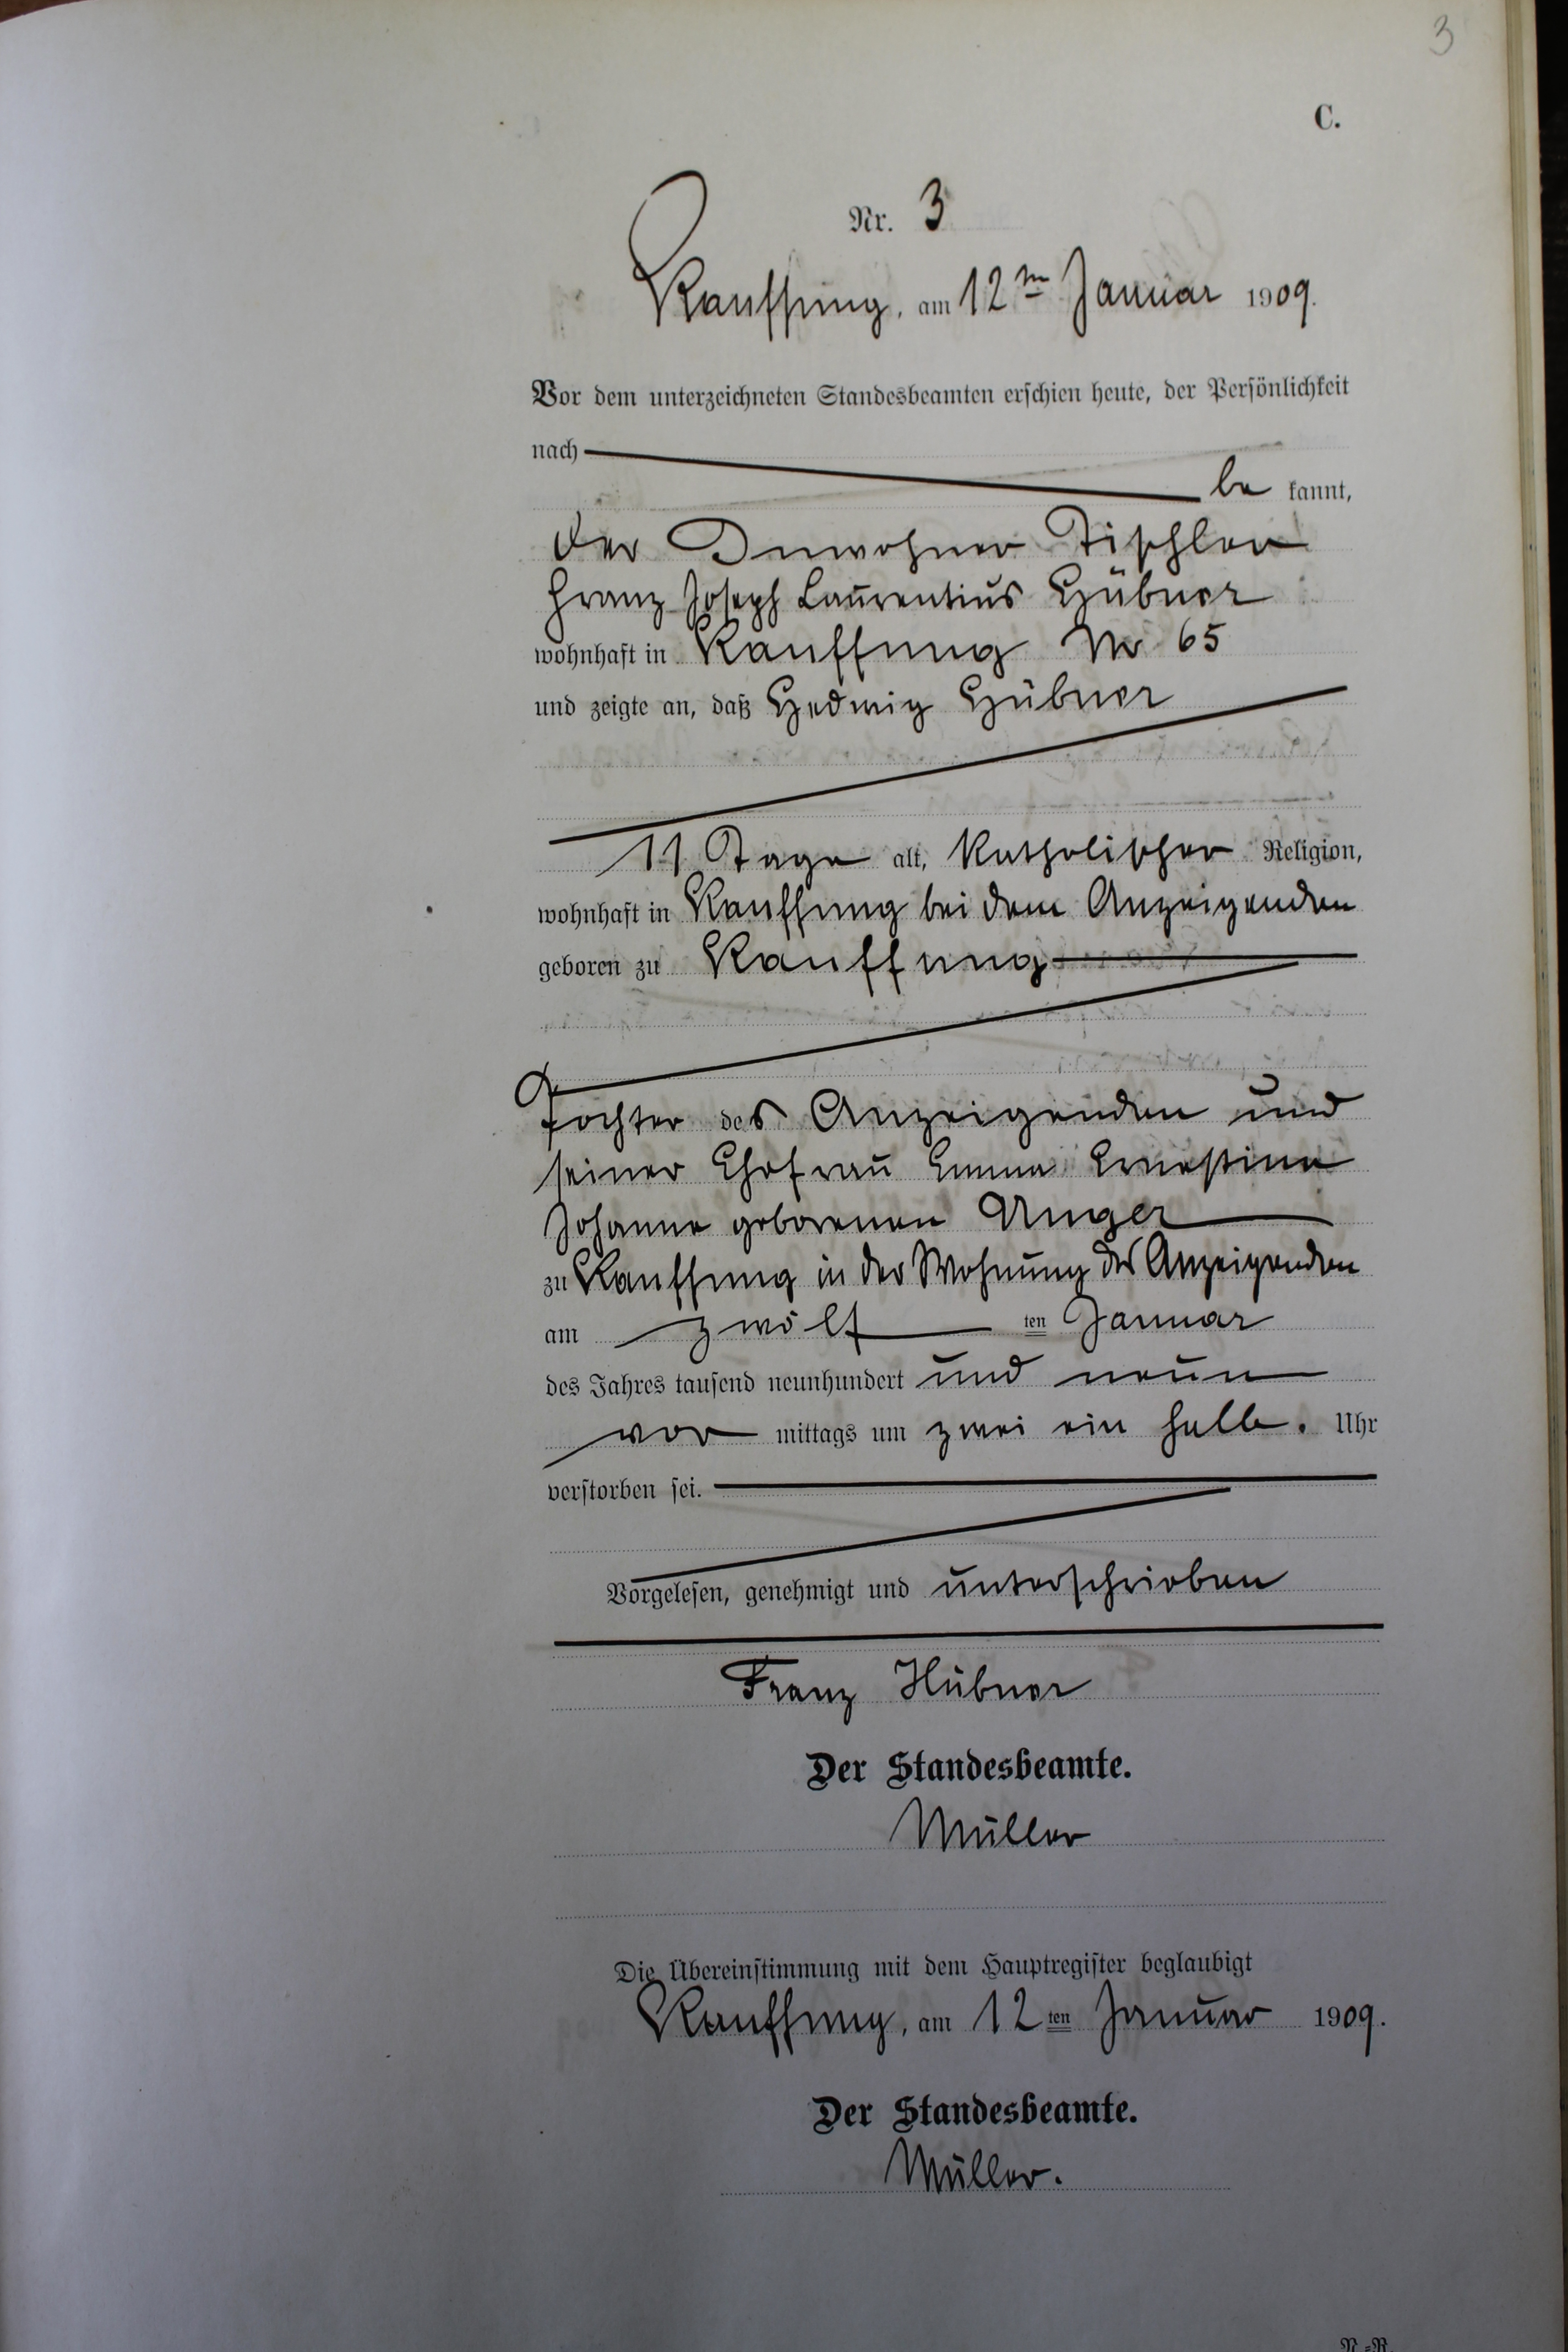 3
C.
Nr. 3
Kauffung, am 12ten Januar 1909.
Vor dem unterzeichneten Standesbeamten erschien heute, der Persönlichkeit
nach
be kannt,
der Inwohner Tischler
Franz Joseph Laurentius Hübner
wohnhaft in Kauffung Nr 65
und zeigte an, daß Hedwig Hübner
11 Tage alt, katholischer Religion,
wohnhaft in Kauffung bei dem Anzeigenden
geboren zu Kauffung
Tochter des Anzeigenden und
seiner Ehefrau Emma Ernestine
Johanne geborenen Unger
zu Kauffung in der Wohnung des Anzeigenden
am zwölf ten Januar
des Jahres tausend neunhundert und neun
vor mittags um zwei ein halb. Uhr
verstorben sei.
Vorgelesen, genehmigt und unterschrieben
Franz Hübner
Der Standesbeamte.
Müller
Die Übereinstimmung mit dem Hauptregister beglaubigt
Kauffung, am 12 ten Januar 1909.
Der Standesbeamte.
Müller.